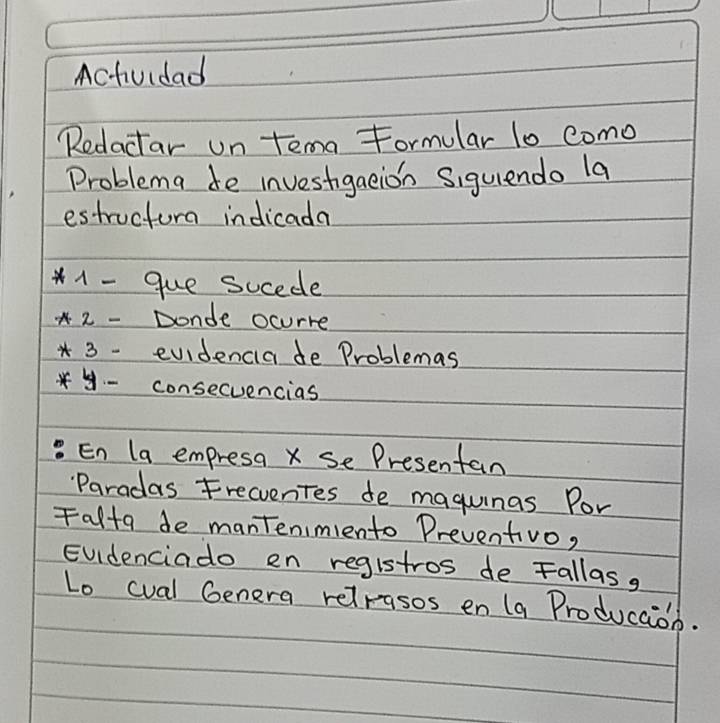 Actividad
Redactar un tema Formular lo como
Problema de investigación siguiendo la
estructura indicada
* 1 - que sucede
* 2 - Donde ocurre
* 3 - evidencia de Problemas
* 4 - consecuencias
: En la empresa x se Presentan
Paradas Frecuentes de maquinas Por
Falta de mantenimiento Preventivo,
Evidenciado en registros de Fallas,
Lo cual Genera retrasos en la Producción.